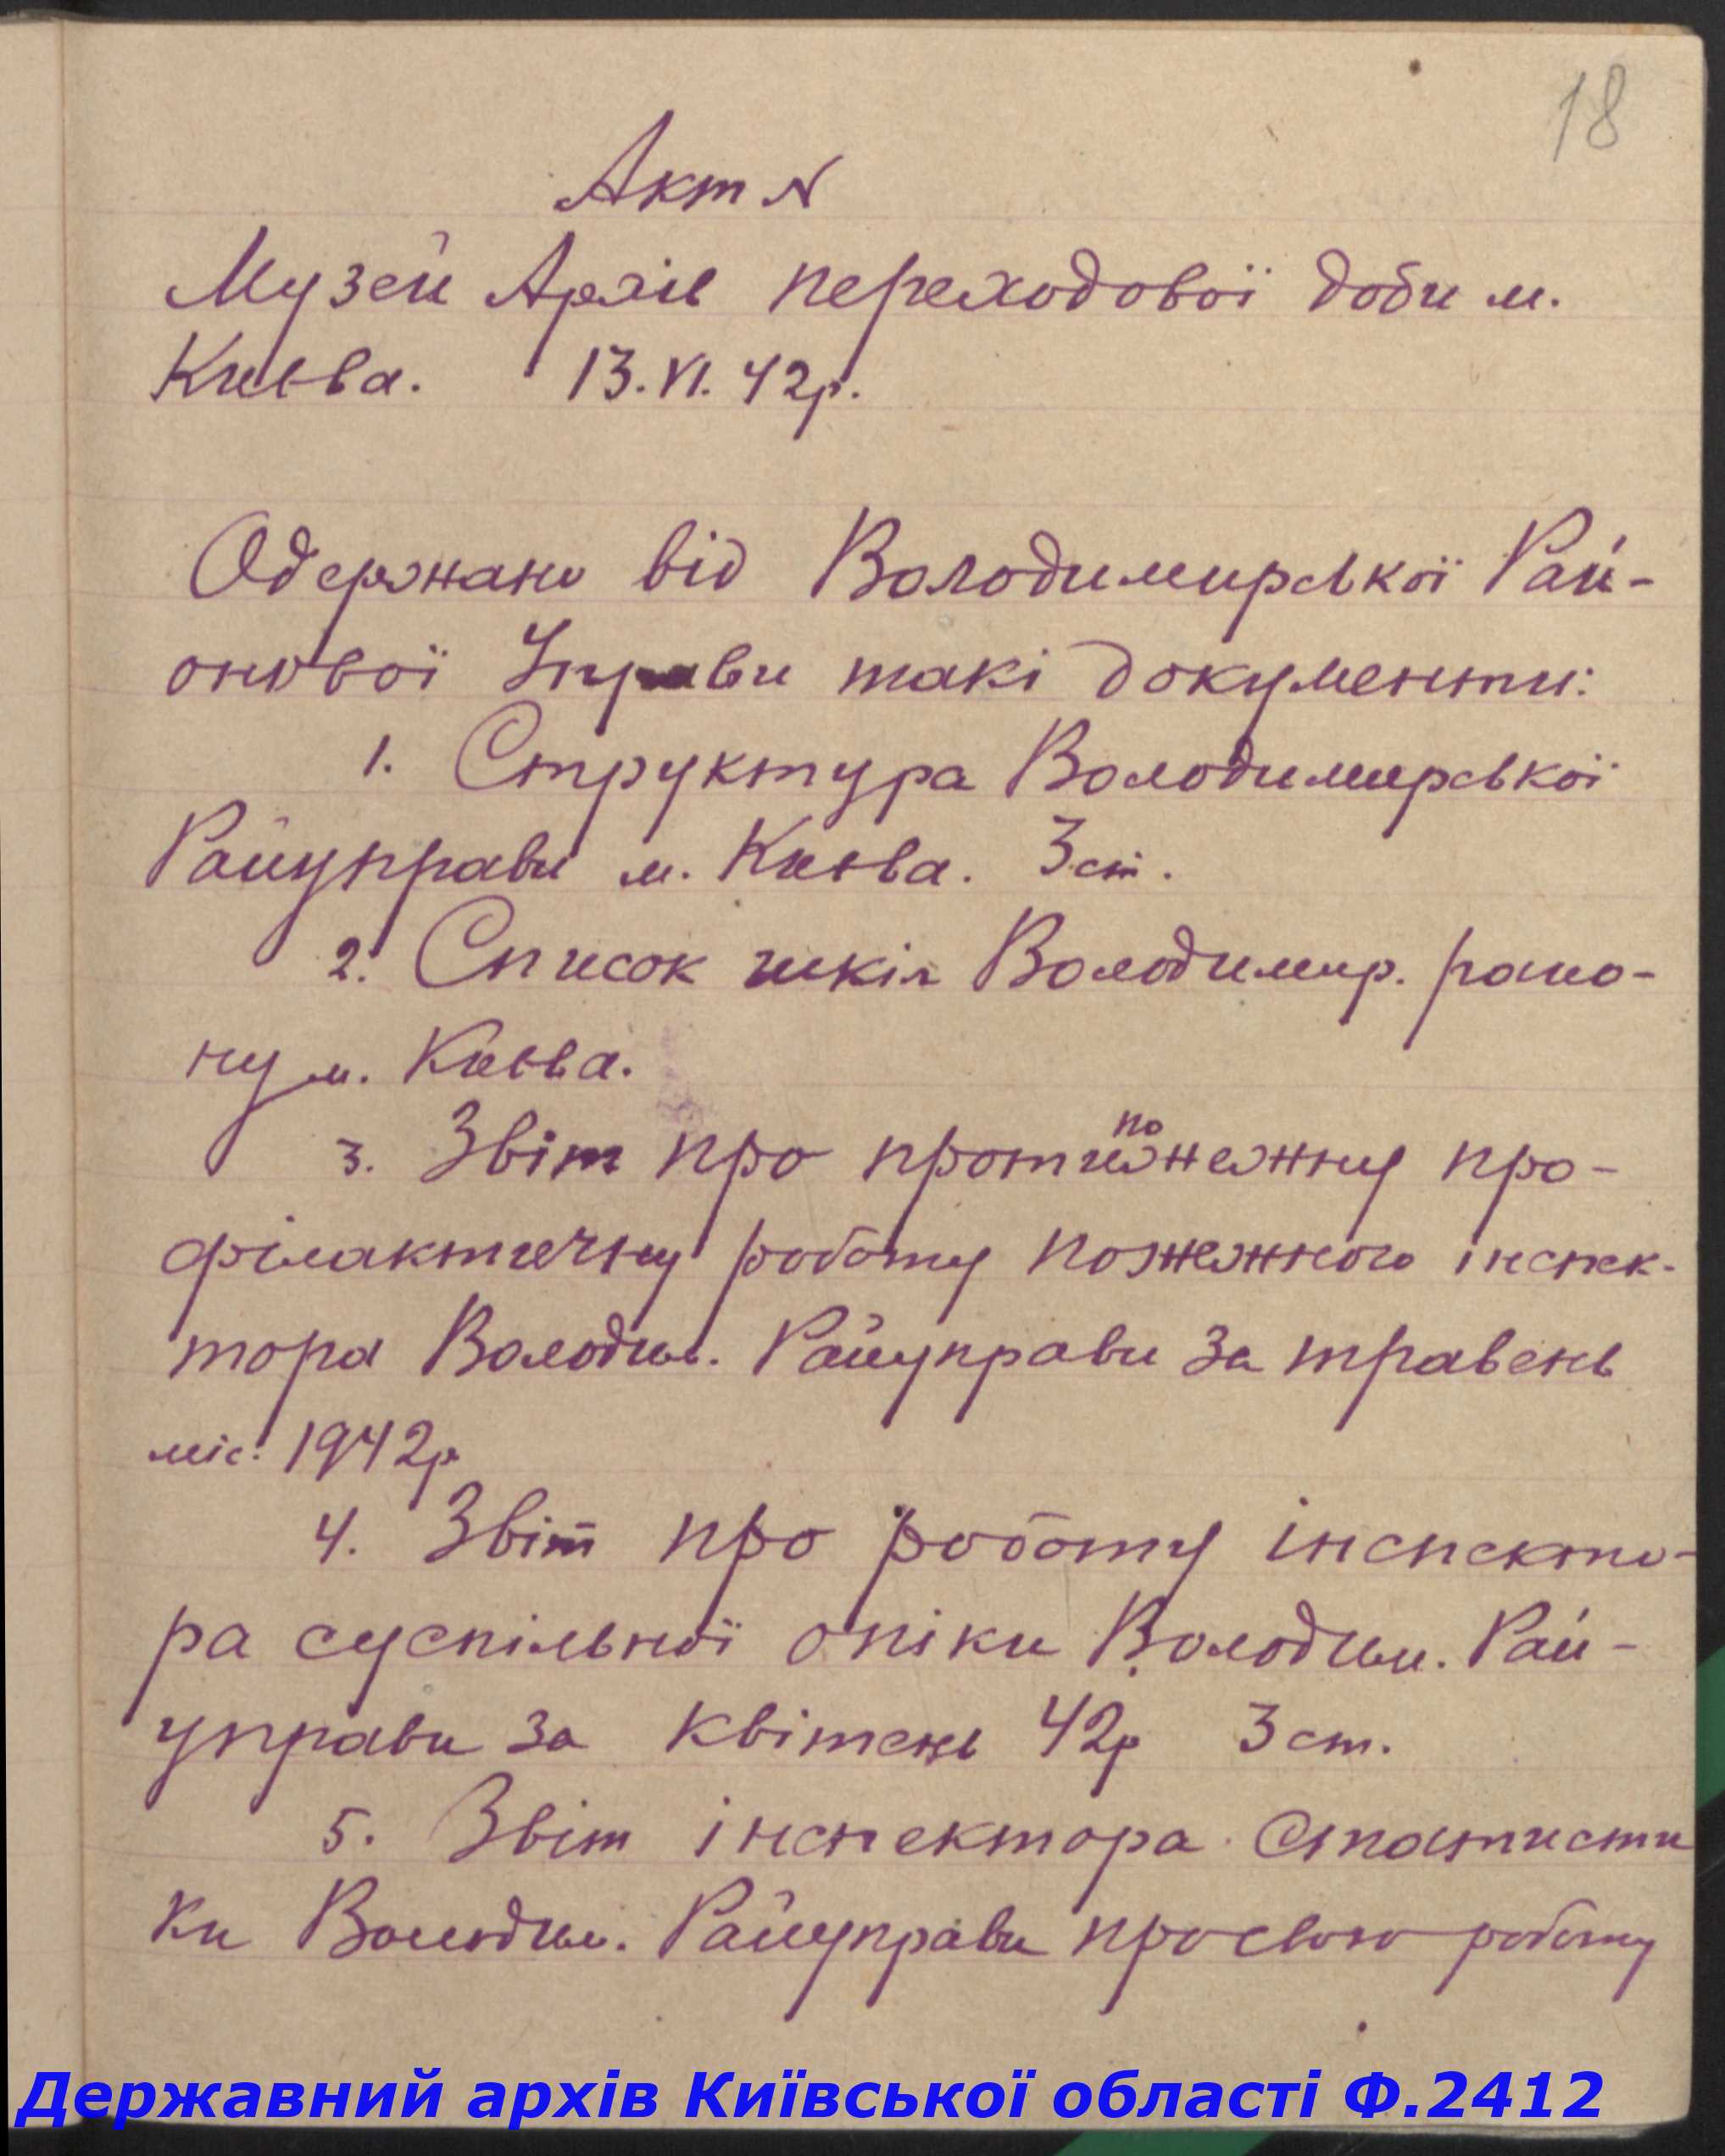 18
Акт №
Музей Архів переходової доби м.
Києва. 13.VI.42р.
Одержано від Володимирської Рай-
онової Управи такі документи:
1. Структура Володимирської
Райуправи м. Києва. 3 ст.
2. Список шкіл Володимир. райо-
ну м. Києва.
3. Звіт про протипожежну про-
філактичну роботу пожежного інспек-
тора Володим. Райуправи за травень
міс. 1942р
4. Звіт про роботу інспекто-
ра суспільної опіки Володим. Рай-
управи за квітень 42р 3 ст.
5. Звіт інспектора статисти
ки Володим. Райуправи про свою роботу
Державний архів Київської області Ф.2412